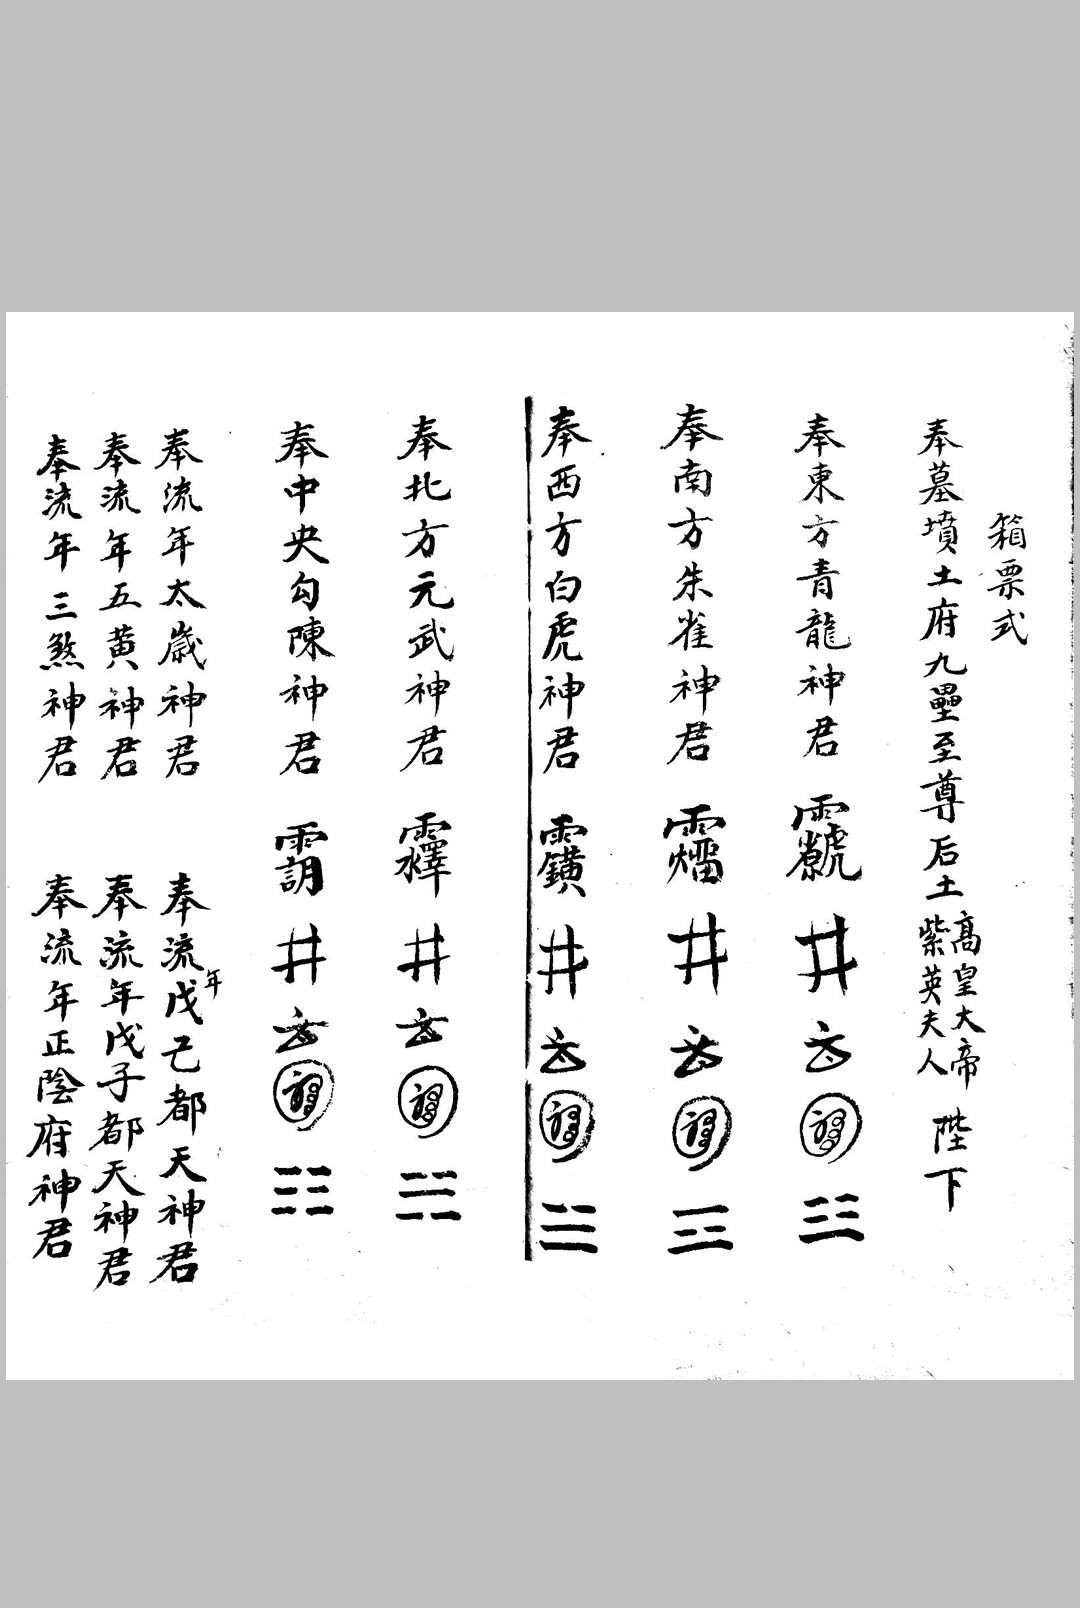 箱票式
奉墓墳土府九壘至尊后土
高皇大帝
紫英夫人
陛下
奉東方青龍神君 井
☳
奉南方朱雀神君 井
奉西方白虎神君 井
奉北方元武神君 井
奉中央勾陳神君 井
☷
奉流年太歲神君
奉流年戊己都天神君
奉流年五黄神君
奉流年戊子都天神君
奉流年三煞神君
奉流年正陰府神君